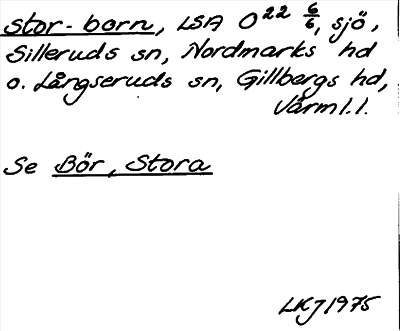 Stor-born, LSA O22 6/6, sjö,
Silleruds sn, Nordmarks hd
o. Långseruds sn, Gillbergs hd,
Värml.l.
Se Bör, Stora
LKJ 1975